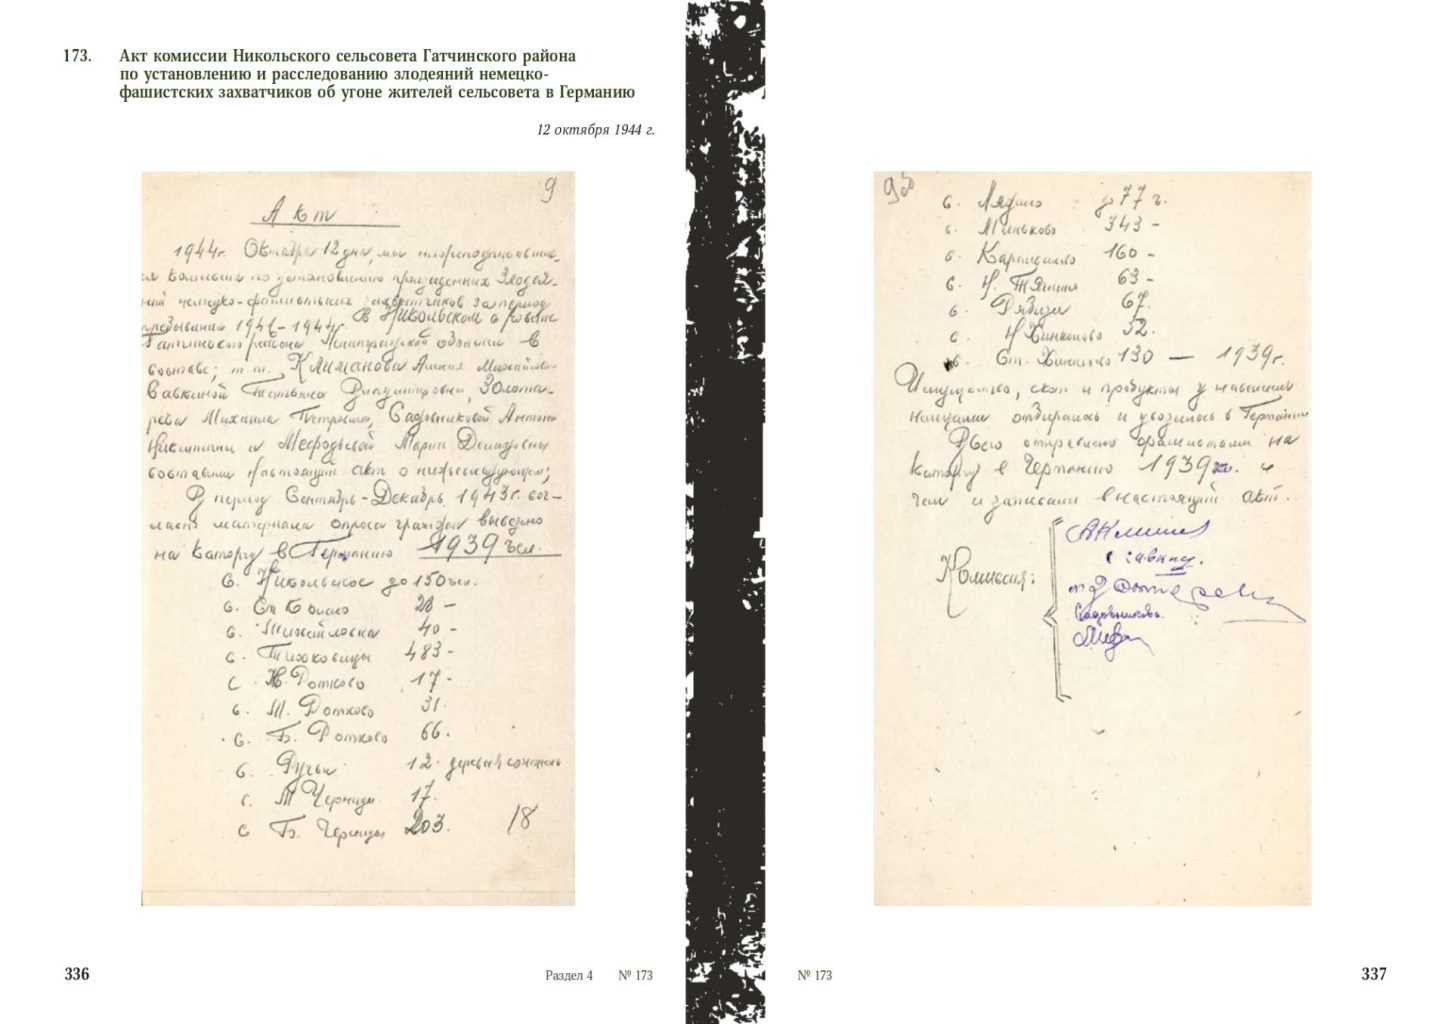 173. Акт комиссии Никольского сельсовета Гатчинского района
по установлению и расследованию злодеяний немецко-
фашистских захватчиков об угоне жителей сельсовета в Германию
12 октября 1944 г.
9
Акт
1944 г. Октября 12 дня, мы
комиссия по установлению Злодея-
немецко-фашистских захватчиков за период
1941-1944 г. В Никольском с/совете
Гатчинского района Ленинградской области в
составе; т.т. Климанова Михайловна
Савкиной Татьяна Золота-
рева Михаила Петровича, Садовниковой Антонины
Никитичны и Марии
составили настоящий акт о нижеследующем;
В период Сентябрь-Декабрь 1943 г. сог-
ласно материала опроса граждан вывезено
на каторгу в Германию 1939 чел.
с. Никольское до 150 чел.
с. 28 —
с. Михайловка 40 -
с. Тихковицы 483 -
с. Н. Ротково 17 -
с. М. Ротково 31.
с. Б. Ротково 66.
с. Ручьи 12. деревня сожжена
с. М Черницы 17.
с Б. Черницы 203.
18
с. Лядино до 77 ч.
с. Миньково 343 -
с. 160 -
с. Н. Тяглино 63 -
с. Рябизи 67.
с. Н Хинколово 52.
с. Ст. Хинколово 130 — 1939 г.
Имущество, скот и продукты у населения
немцами отбирались и увозилось в Германию
Всего отправлено фашистами на
каторгу в Германию 1939 о
чем и записали в настоящий акт.
Комиссия:
Садовникова
336
Раздел 4 № 173
№ 173
337